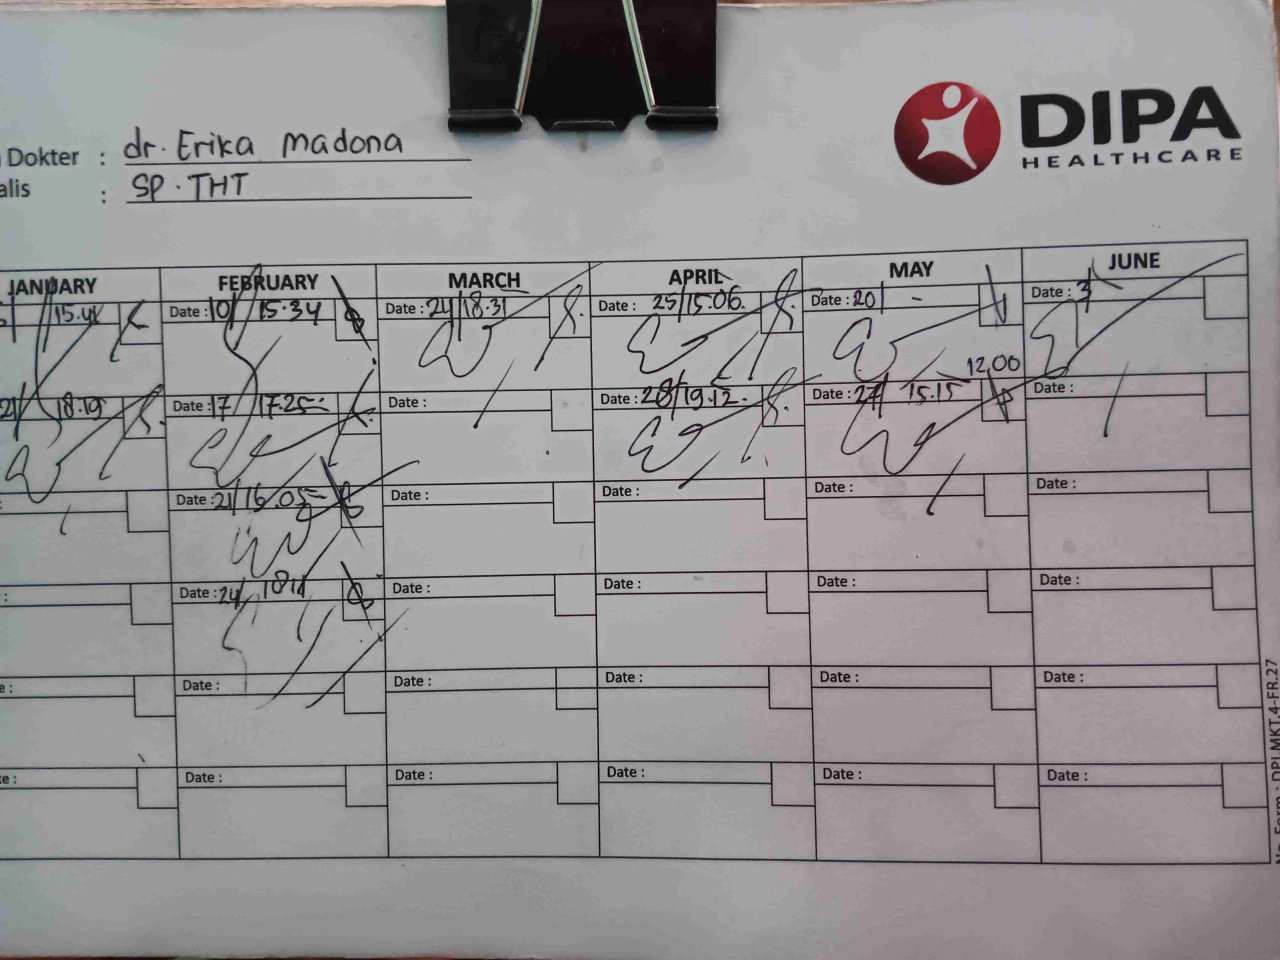 DIPA
HEALTHCARE
Dokter : dr. Erika Madona
alis : SP. THT
JANUARY FEBRUARY MARCH APRIL MAY JUNE
Date : 10/ 15.34 Date : 24/18.31 Date : 25/15.06. Date : 20/ - Date : 3
12.00
21/ 18.19 Date : 17 17.25 Date : Date : 28/19.12. Date : 27/ 15.15 Date :
: Date : 21/16.05 Date : Date : Date : Date :
: Date : 24/ Date : Date : Date : Date :
e : Date : Date : Date : Date : Date :
te : Date : Date : Date : Date : Date :
Form : DPI.MKT.4-FR.27